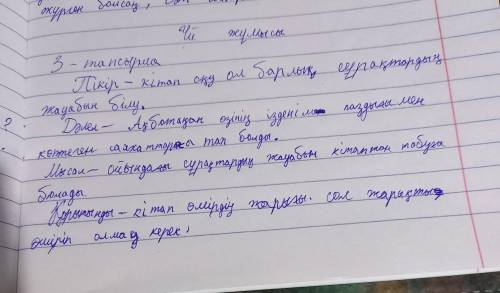 жүрген болсаң,
Үй жұмысы
3 - тапсырма
Пікір - кітап оқу ол барлық сұрақтардың
жауабын білу.
Дәлел - Ақботақан өзінің ізденімпаздылы мен
көптеген саяхаттарға тап болды.
Мысал - ойындағы сұрақтардың жауабын кітаптан табуға
болады.
Қорытынды - кітап өмірдің жарығы. сол жарықты
өшіріп алмау керек.